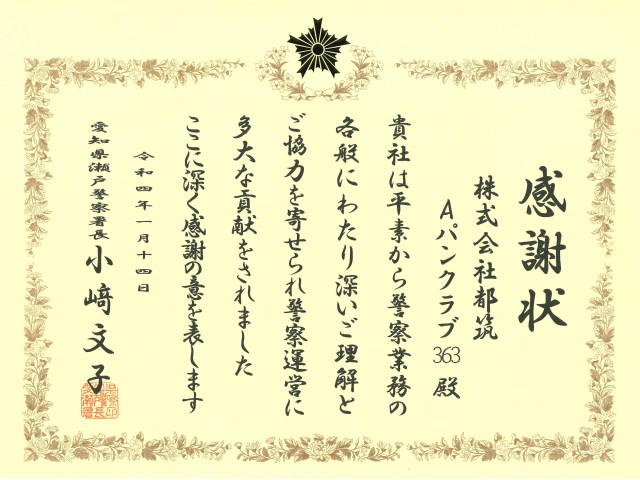 感謝状
株式会社都筑
Aパンクラブ363 殿
貴社は平素から警察業務の
各般にわたり深いご理解と
ご協力を寄せられ警察運営に
多大な貢献をされました
ここに深く感謝の意を表します
令和四年一月十四日
愛知県瀬戸警察署長 小﨑文子